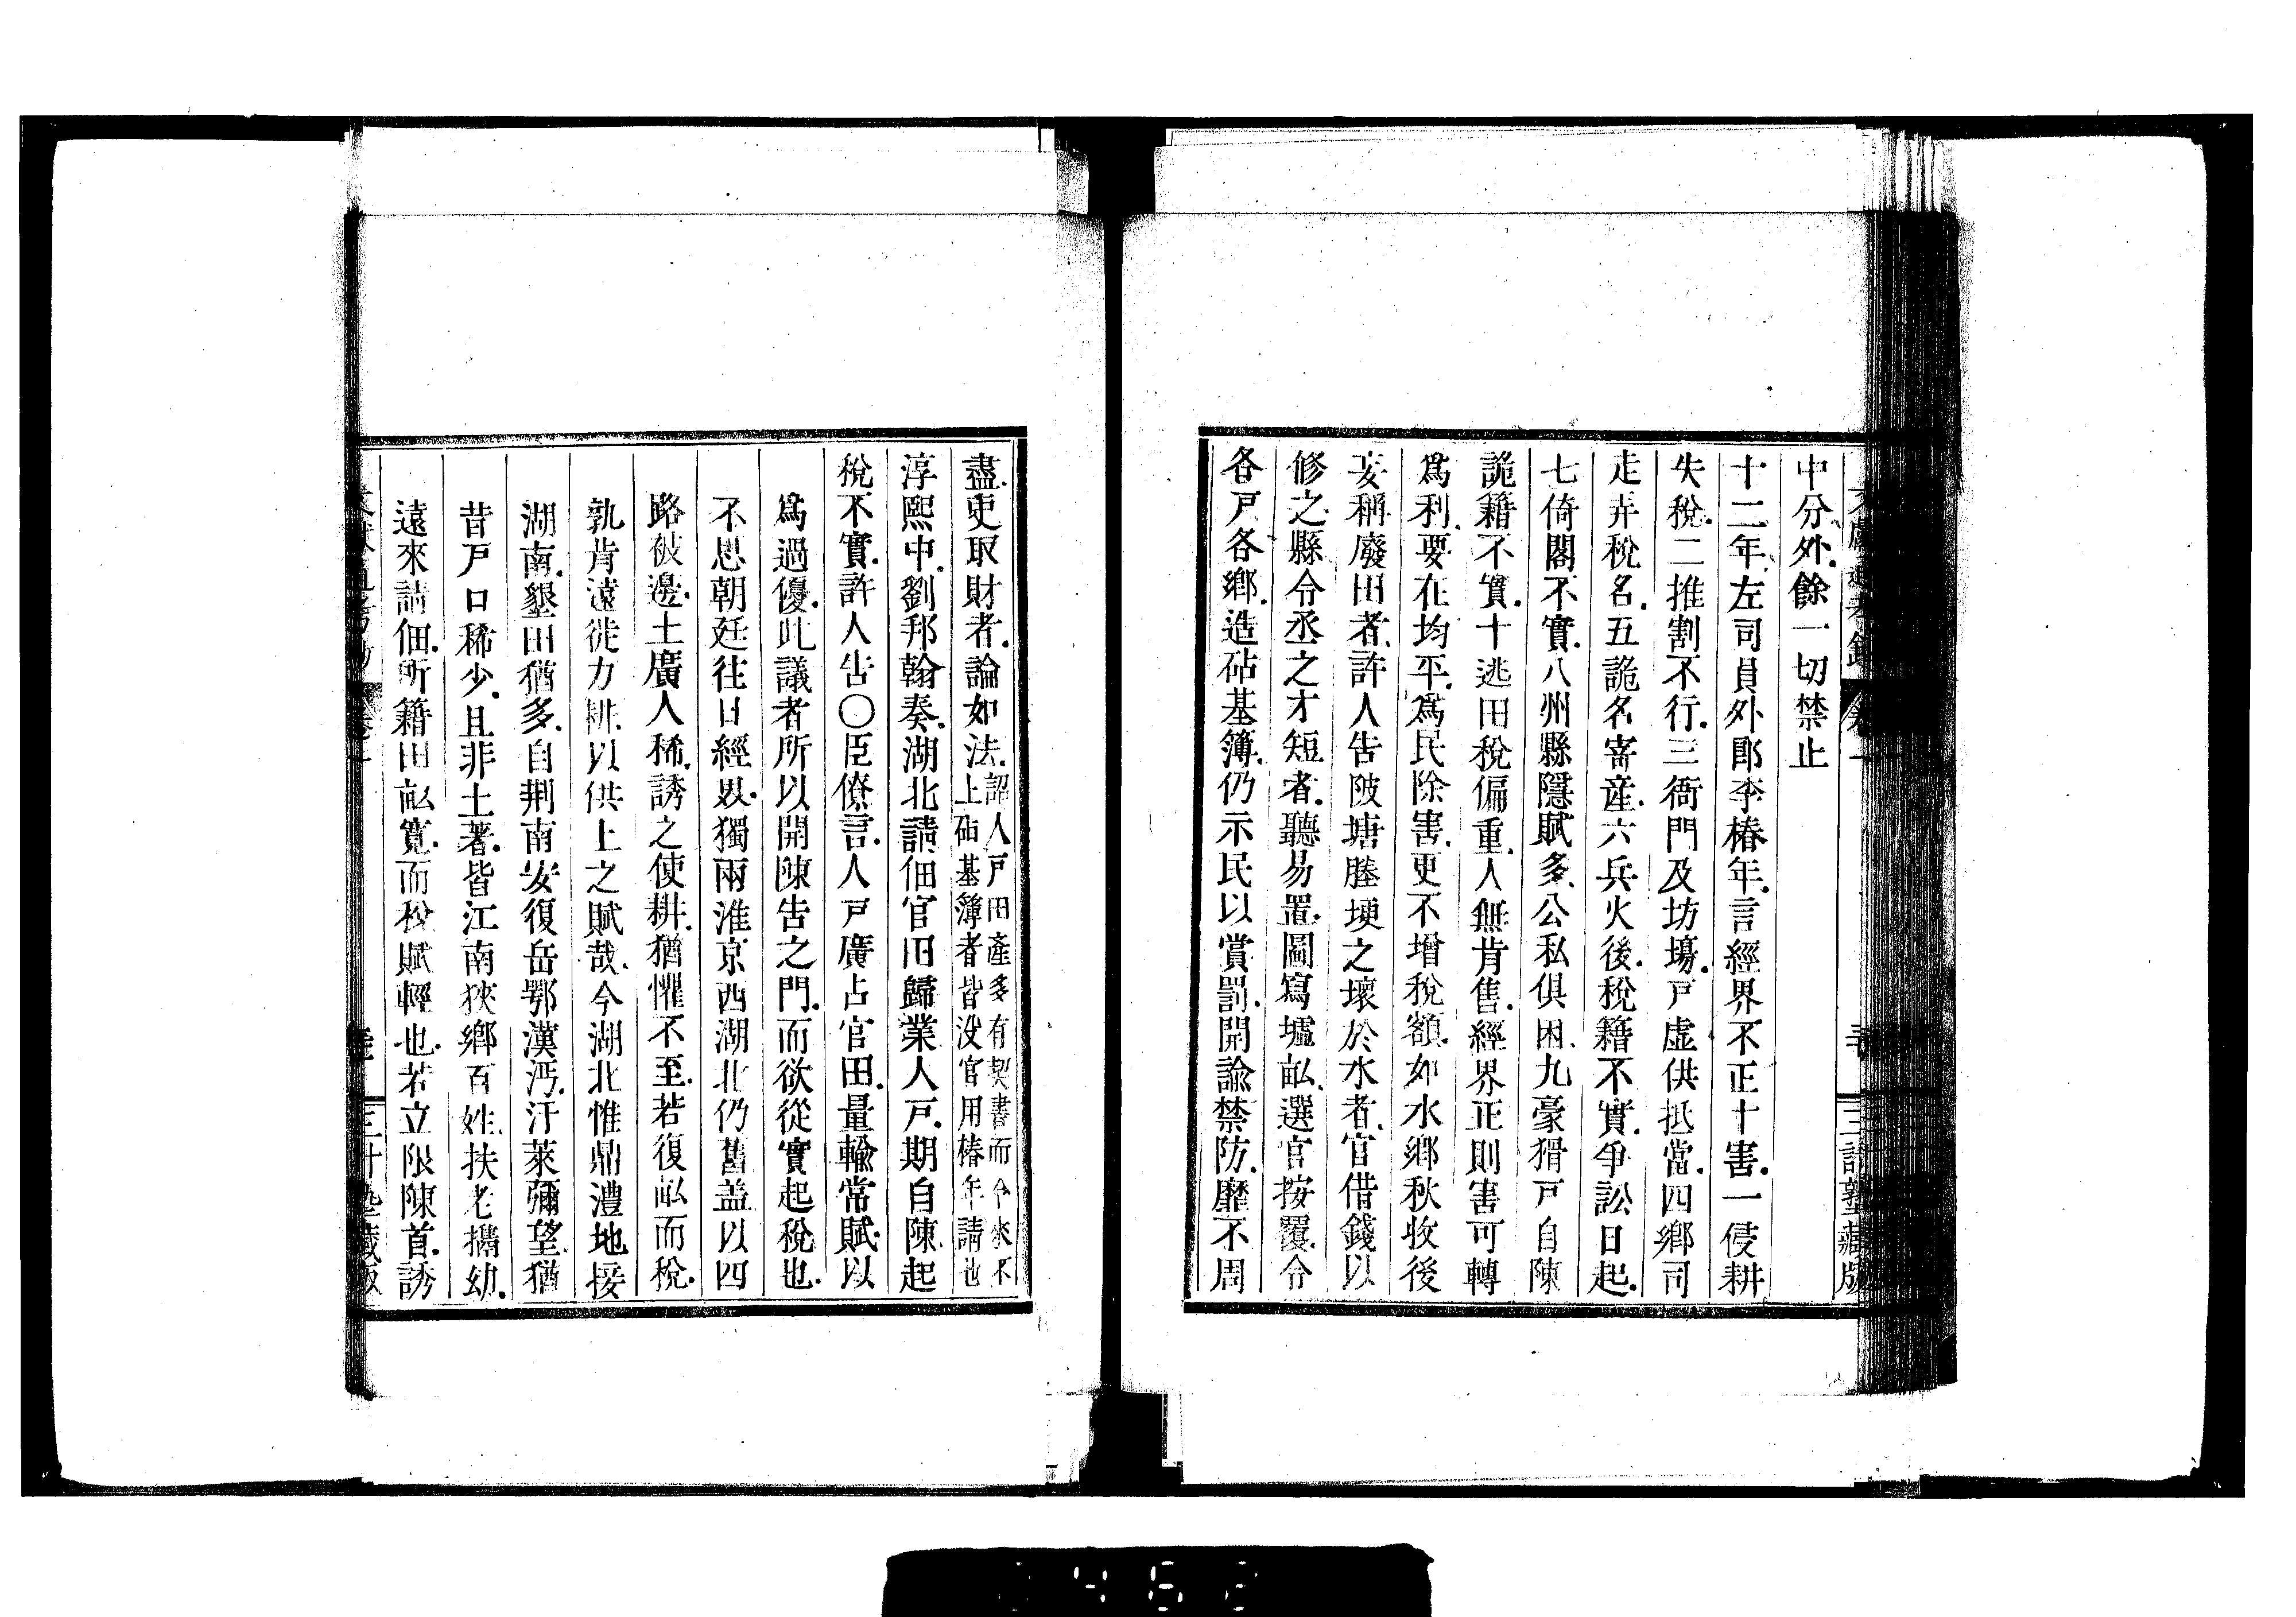 中分外餘一切禁止
十二年左司員外郎李椿年言經界不正十害一侵耕
失稅二推割不行三衙門及坊場戸虛供抵當四鄉司
走弄稅名五詭名寄產六兵火後稅籍不實爭訟日起
七倚閣不實八州縣隱賦多公私俱困九豪猾戸自陳
詭籍不實十逃田稅偏重人無肯售經界正則害可轉
爲利要在均平爲民除害更不增稅額如水鄉秋收後
妄稱廢田者許人告陂塘塍埂之壞於水者官借錢以
修之縣令丞之才短者聽易置圖寫墟畝選官按覆令
各戸各鄉造砧基簿仍示民以賞罰開諭禁防靡不周
盡吏取財者論如法詔人戸田產多有契書而今來不
上砧基簿者皆没官用椿年請也
淳熙中劉邦翰奏湖北請佃官田歸業人戸期自陳起
稅不實許人告〇臣僚言人戸廣占官田量輸常賦以
爲過優此議者所以開陳告之門而欲從實起稅也
不思朝廷往日經界獨兩淮京西湖北仍舊盖以四
路被邊土廣人稀誘之使耕猶懼不至若復畝而稅
孰肯遠徙力耕以供上之賦哉今湖北惟鼎澧地接
湖南墾田猶多自荆南安復岳鄂漢沔汙萊彌望猶
昔戸口稀少且非土著皆江南狹鄉百姓扶老攜幼
遠來請佃所籍田畝寬而稅賦輕也若立限陳首誘